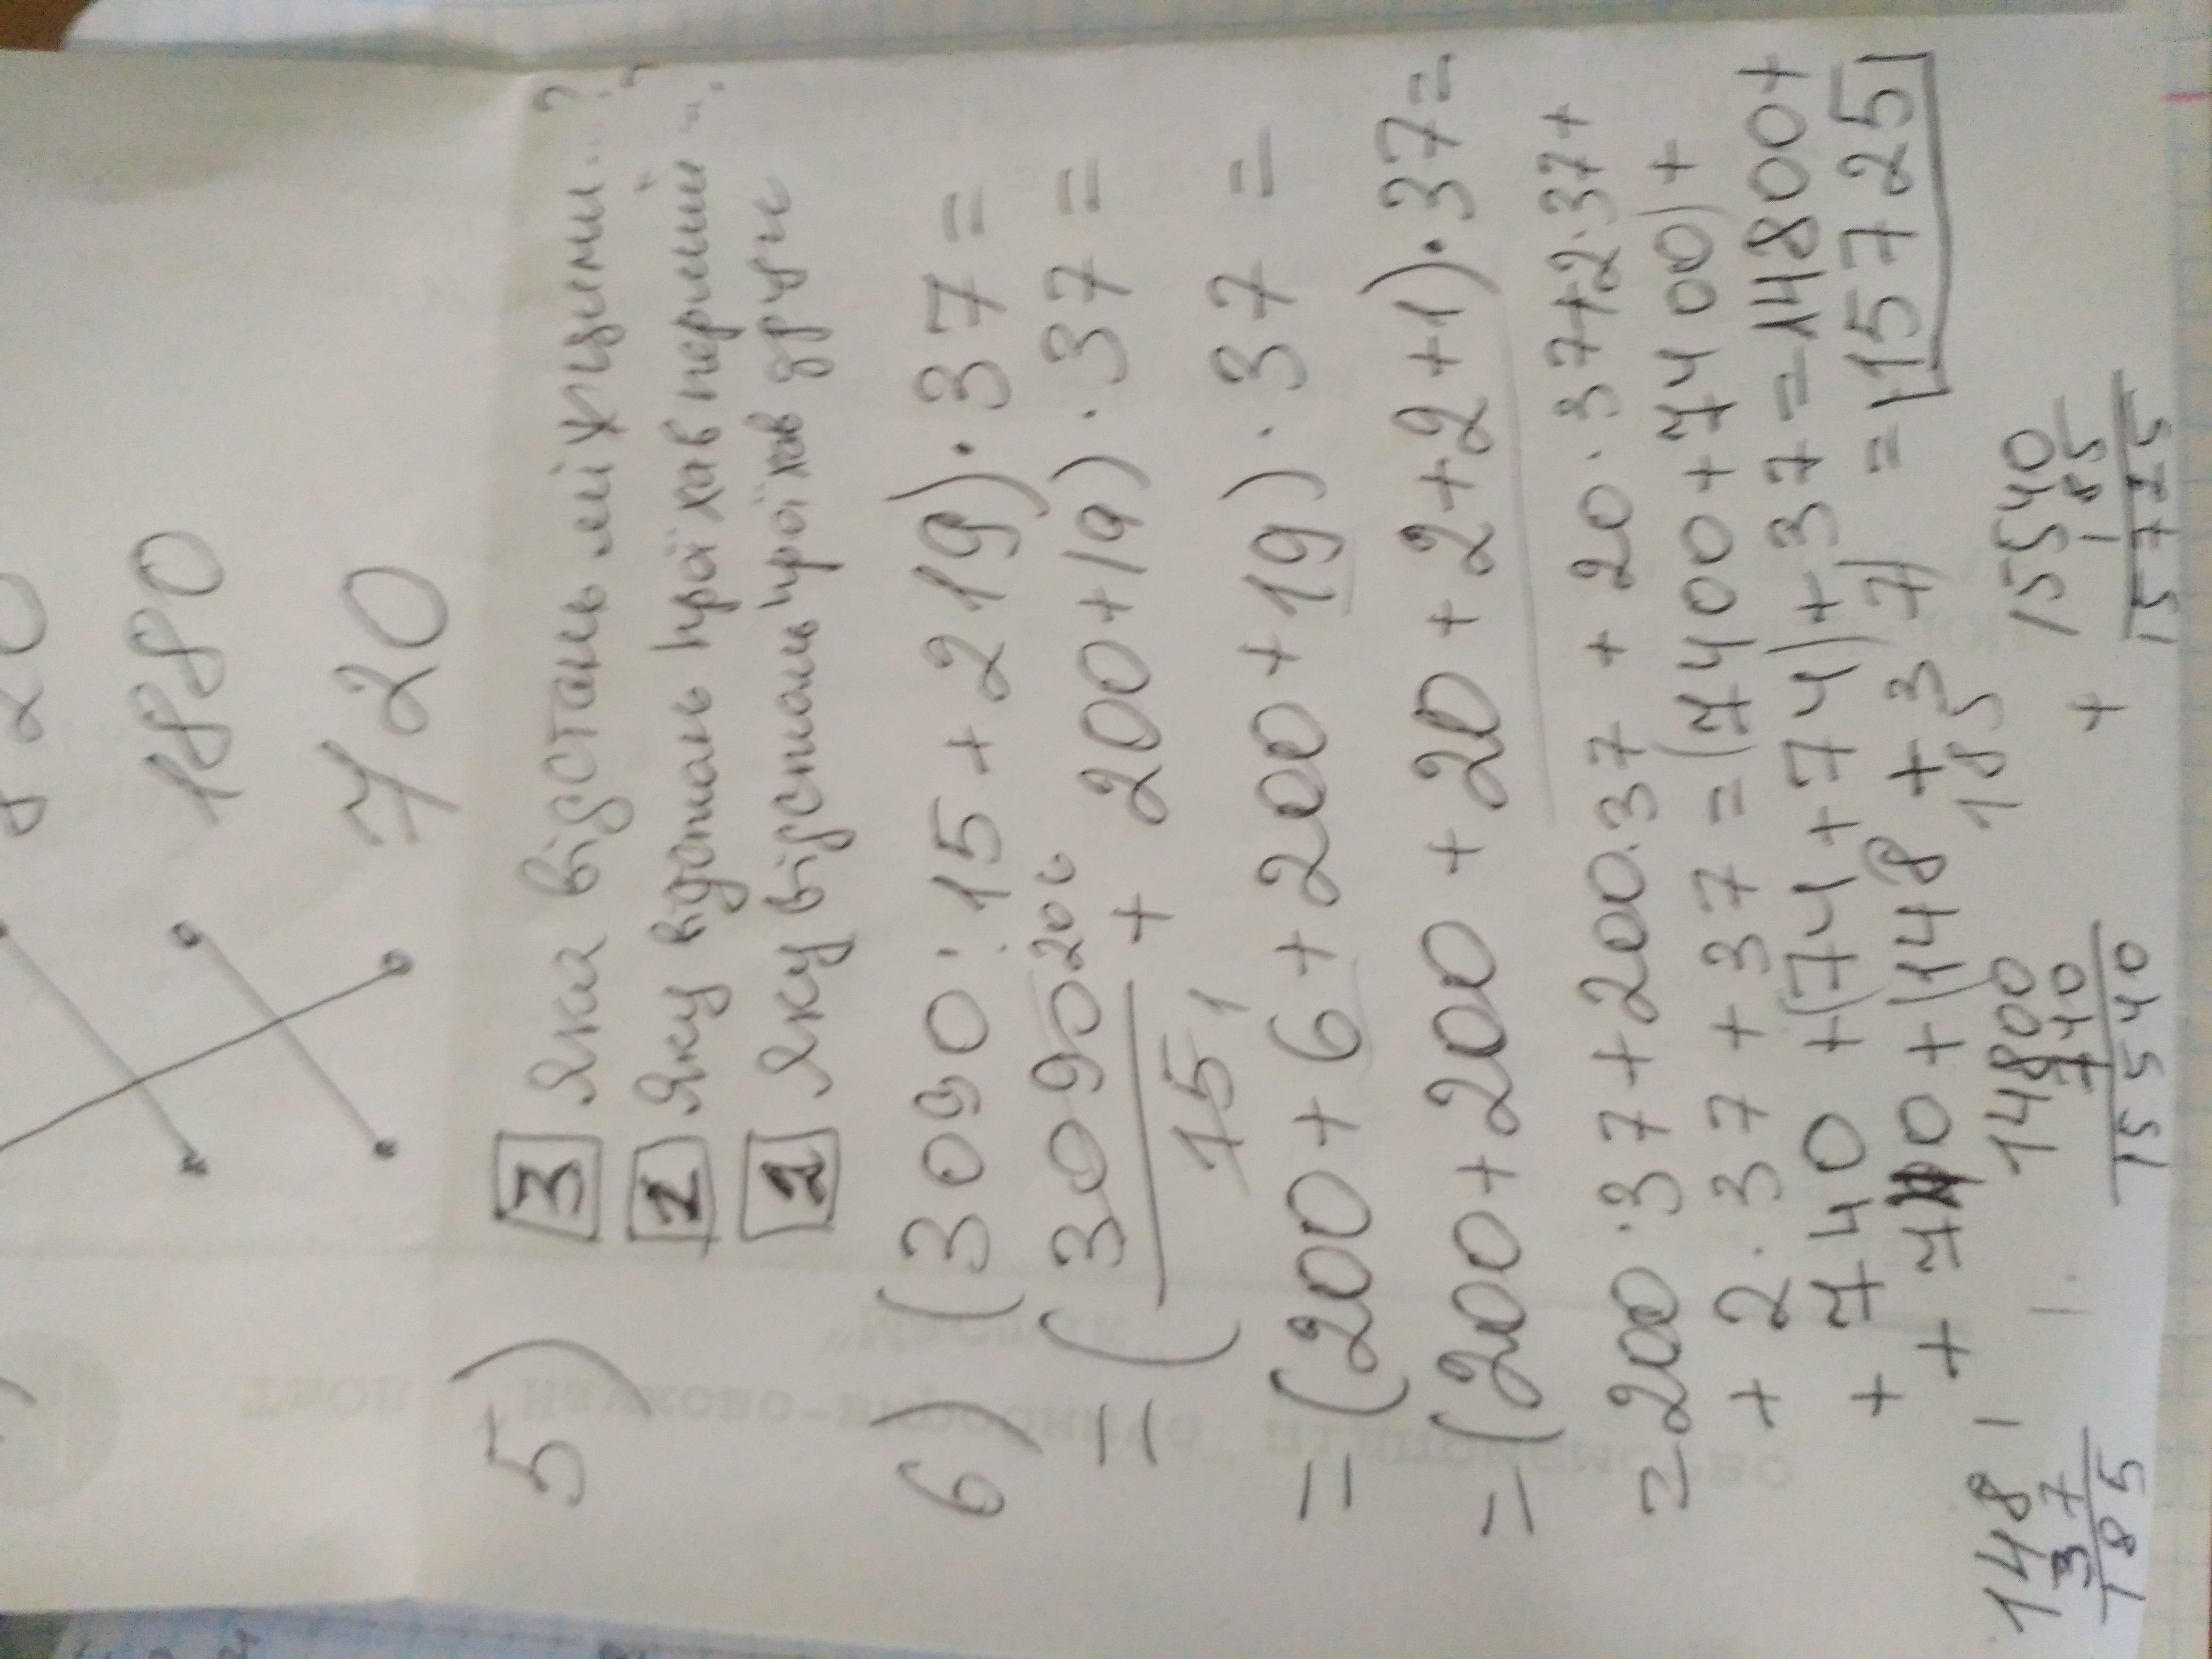 1880
720
5) 3 Яка відстань між цими...?
1 Яку відстань проїхав перший...?
2 Яку відстань проїхав друг
6) (3090:15+219)·37=
=(3090/15+200+19)·37=
=(200+6+200+19)·37=
=(200+200+20+20+2+2+1)·37=
=200·37+200·37+20·37+20·37+2·37+
+2·37+37=(7400+7400)+
+740+(74+74)+37=14800+
+740+(148+37)=15725
185
148
37
185
14800
740
15540
+15540
185
15725